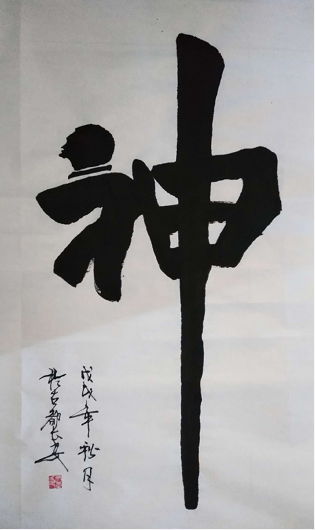 神
戊戌年秋月
於古都长安